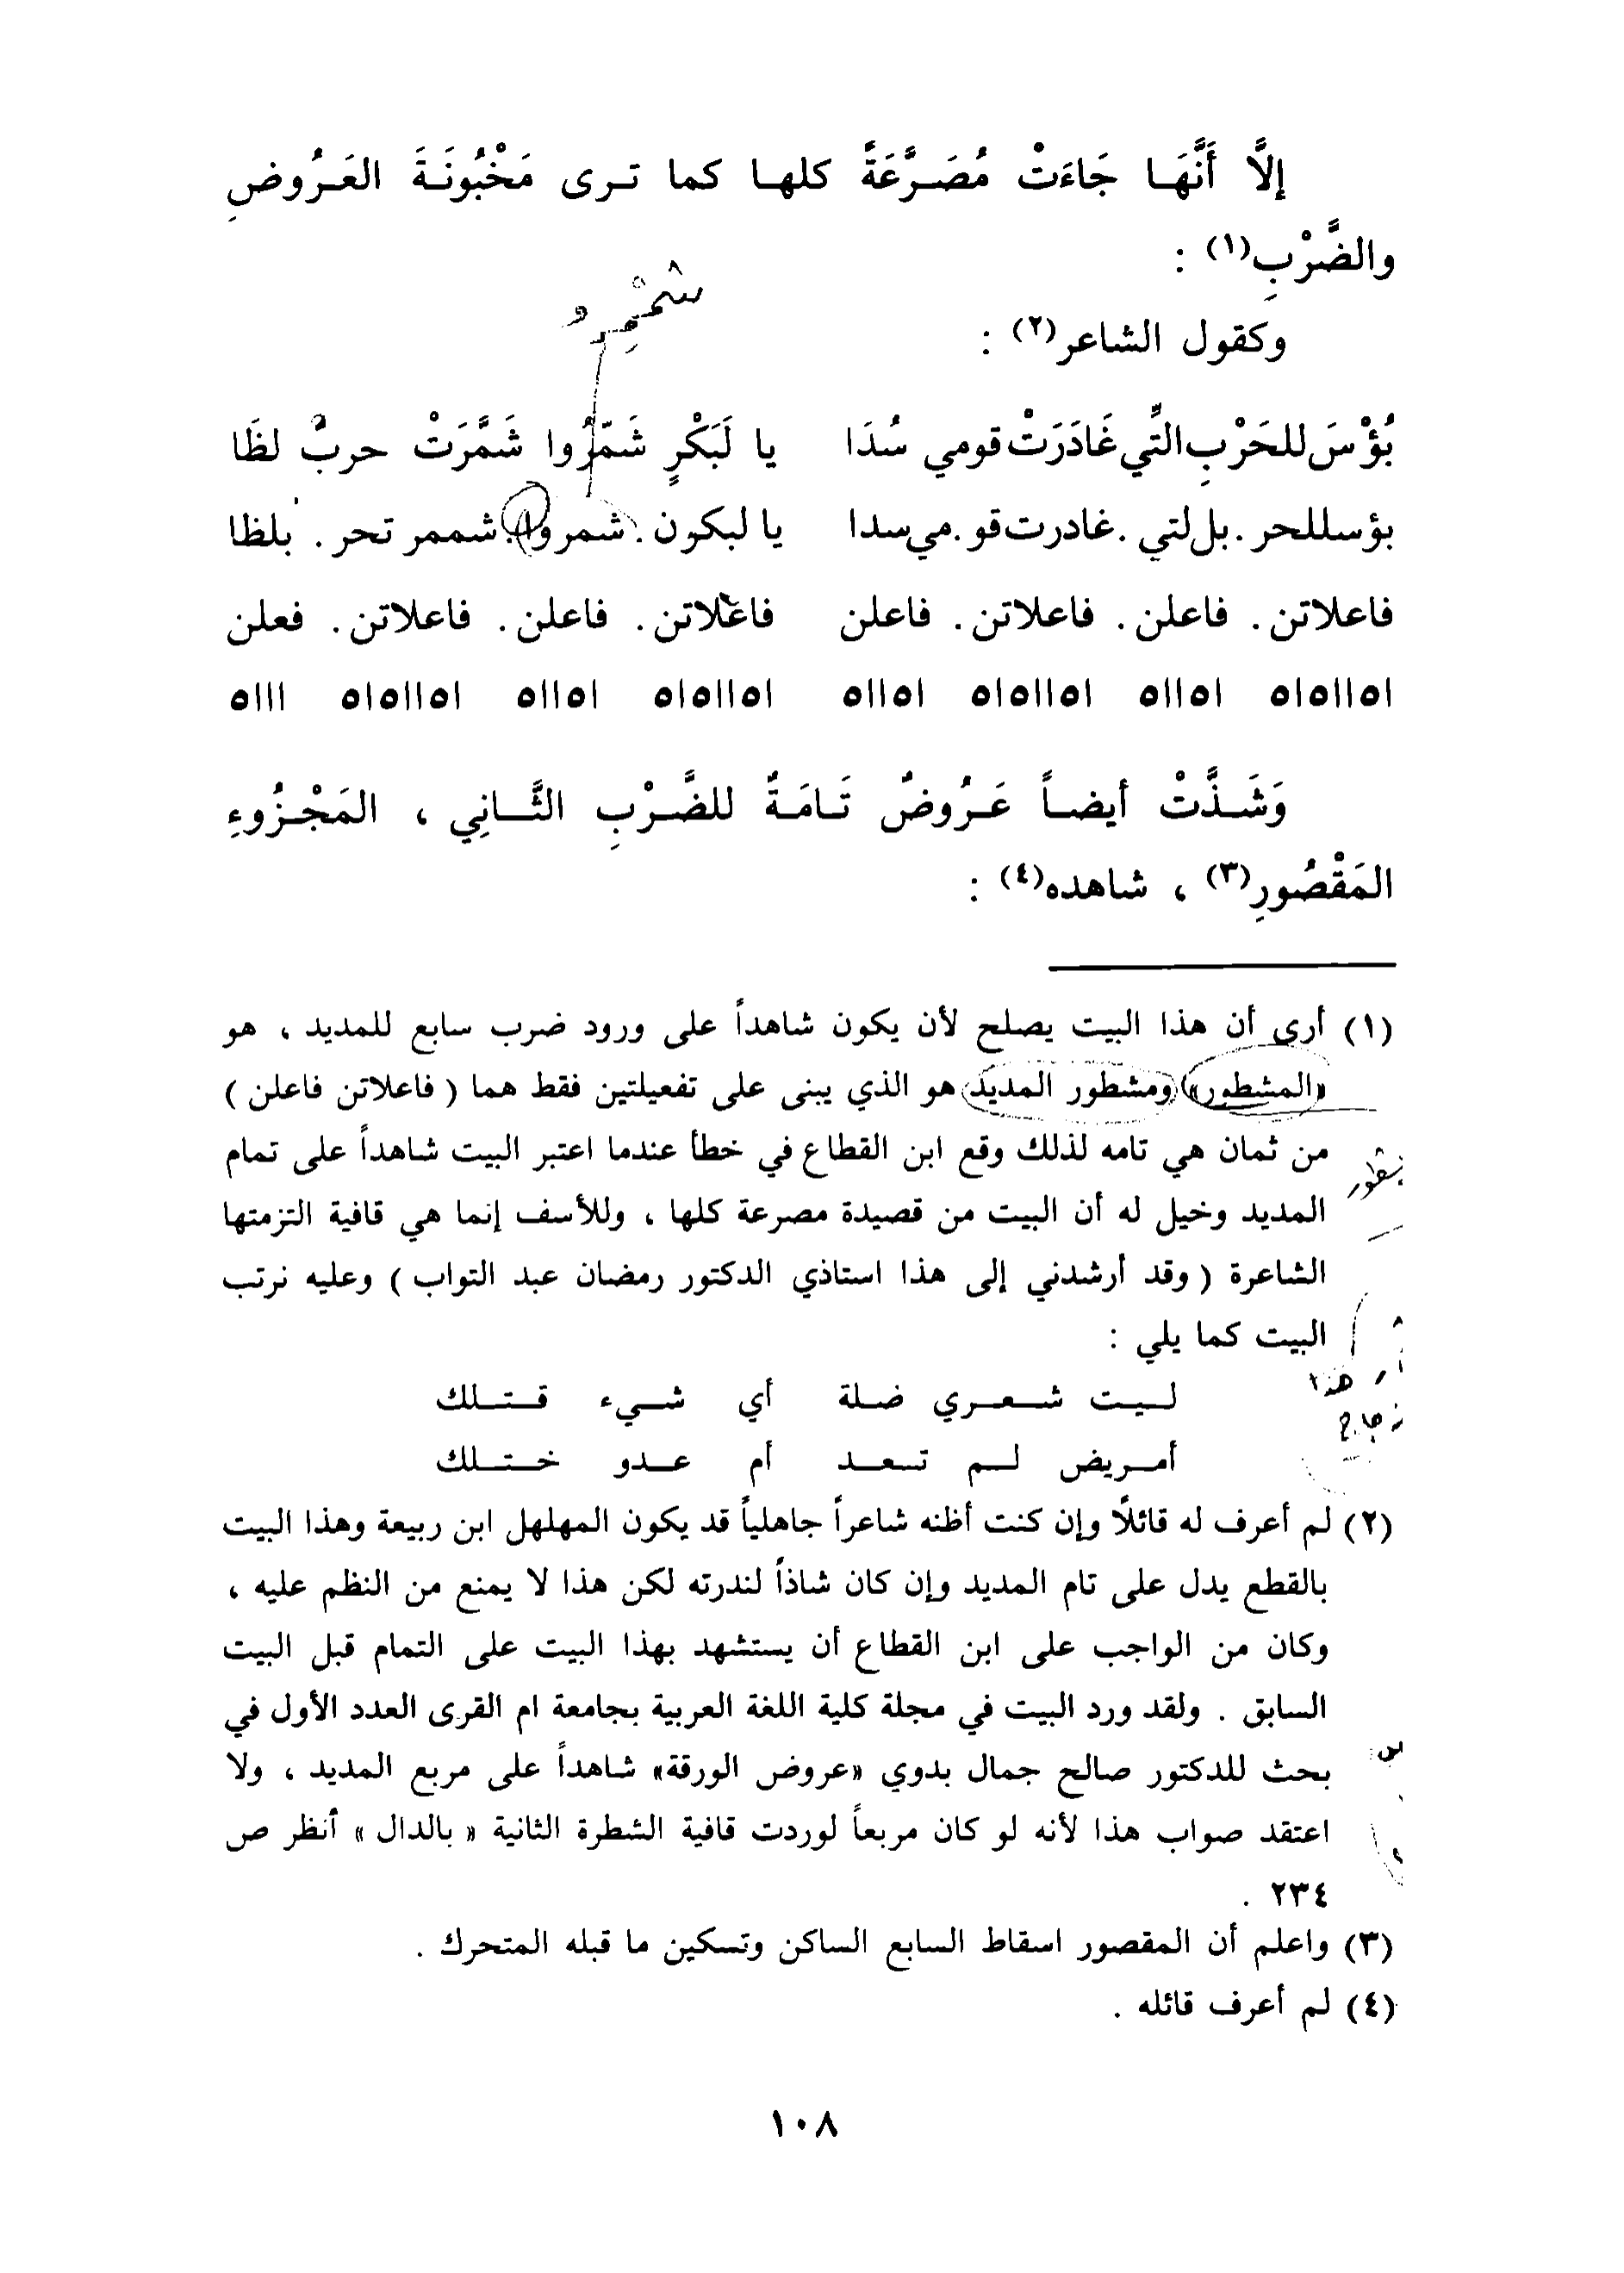 إلاَّ أَنَّهَا جَاءَتْ مُصَرَّعَةً كلها كما ترى مَخْبُونَةَ العَرُوضِ
والضَّرْبِ(١) :
شمْمِرُو
وكقول الشاعر(٢) :
بُؤْسَ للحَرْبِ التِّي غَادَرَتْ قومي سُدَا يا لَبَكْرٍ شَمِّرُوا شَمَّرَتْ حربٌ لظَا
بؤسللحر . بل لتي . غادرت قو . مي سدا يا لبكون . شمروا . شممر تحر . بلظا
فاعلاتن . فاعلن . فاعلاتن . فاعلن فاعلاتن . فاعلن . فاعلاتن . فعلن
ا٥اا٥ا٥ ا٥اا٥ ا٥اا٥ا٥ ا٥اا٥ ا٥اا٥ا٥ ا٥اا٥ ا٥اا٥ا٥ ااا٥
وَشَذَّتْ أيضاً عَرُوضٌ تَامَةٌ للضَّرْبِ الثَّانِي ، المَجْزُوءِ
المَقْصُورِ(٣) ، شاهده(٤) :
(١) أرى أن هذا البيت يصلح لأن يكون شاهداً على ورود ضرب سابع للمديد ، هو
«المشطور» ومشطور المديد هو الذي يبنى على تفعيلتين فقط هما ( فاعلاتن فاعلن )
من ثمان هي تامه لذلك وقع ابن القطاع في خطأ عندما اعتبر البيت شاهداً على تمام
المديد وخيل له أن البيت من قصيدة مصرعة كلها ، وللأسف إنما هي قافية التزمتها
الشاعرة ( وقد أرشدني إلى هذا استاذي الدكتور رمضان عبد التواب ) وعليه نرتب
البيت كما يلي :
هذا
ليت شعري ضلة أي شيء قتلك
أمريض لم تعد أم عدو ختلك
(٢) لم أعرف له قائلًا وإن كنت أظنه شاعراً جاهلياً قد يكون المهلهل ابن ربيعة وهذا البيت
بالقطع يدل على تام المديد وإن كان شاذاً لندرته لكن هذا لا يمنع من النظم عليه ،
وكان من الواجب على ابن القطاع أن يستشهد بهذا البيت على التمام قبل البيت
السابق . ولقد ورد البيت في مجلة كلية اللغة العربية بجامعة ام القرى العدد الأول في
بحث للدكتور صالح جمال بدوي «عروض الورقة» شاهداً على مربع المديد ، ولا
اعتقد صواب هذا لأنه لو كان مربعاً لوردت قافية الشطرة الثانية « بالدال » أنظر ص
٢٣٤ .
(٣) واعلم أن المقصور اسقاط السابع الساكن وتسكين ما قبله المتحرك .
(٤) لم أعرف قائله .
١٠٨